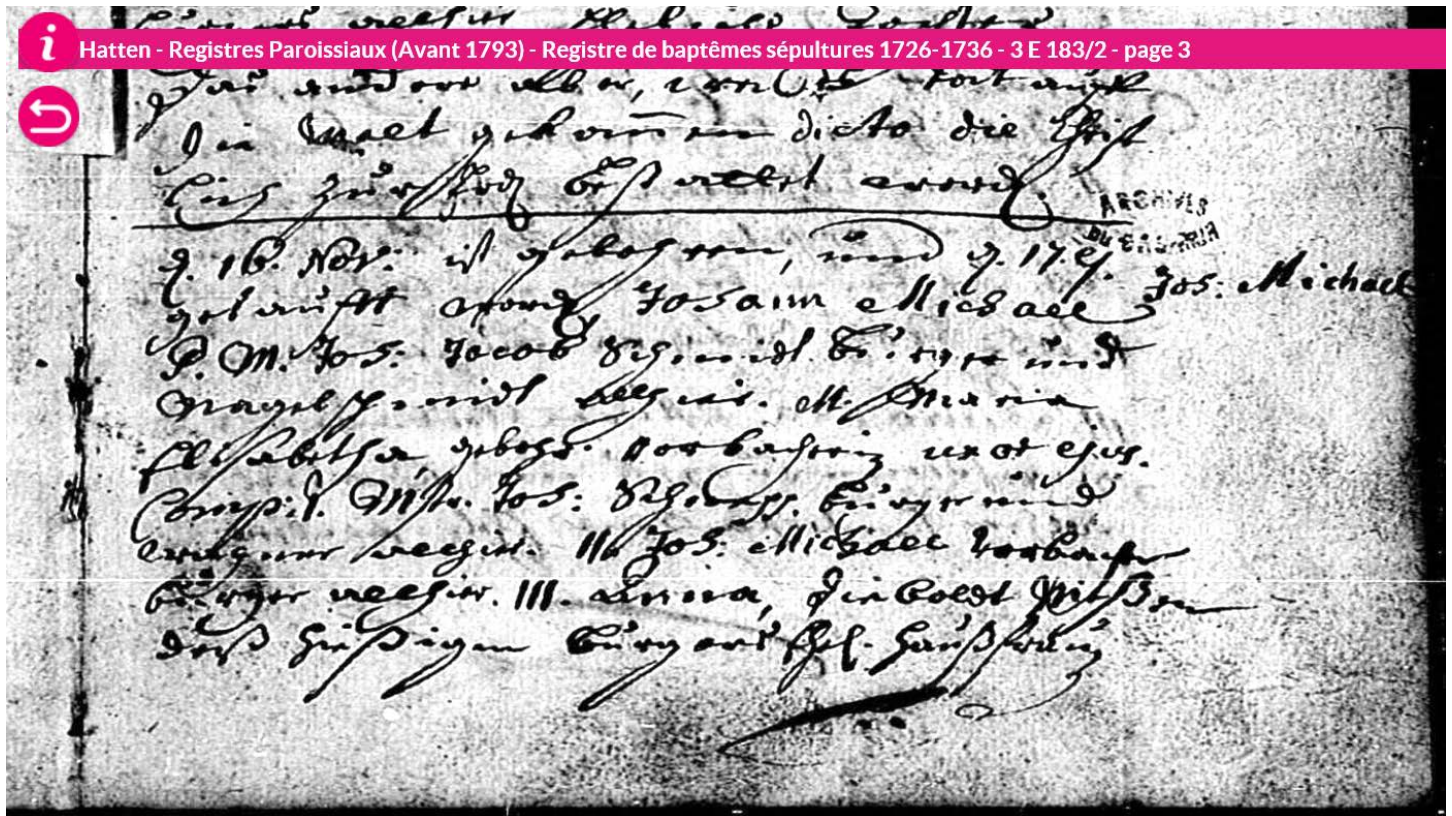 Hatten - Registres Paroissiaux (Avant 1793) - Registre de baptêmes sépultures 1726-1736 - 3 E 183/2 - page 3
das andere aber, welches todt auff
die Welt gekom̄en dicto die Christ
lich zur Erd bestattet word.
ARCHIVES
DU BAS-RHIN
d. 16. Nov: ist gebohren, und d. 17. ej.
Joh: Michael
getaufft word, Johann Michael
P. M. Joh: Jacob Schmidt burger und
Nagelschmidt allhier. M. Maria
Elisabetha, gebohr. vorbacherin uxor ejus.
Comp: I. Mstr. Joh: burger und
wagner allhier. II. Joh: Michael vorbacher
burger allhier. III. Anna, Dieboldt
deß hießigen burgers Ehel. Haußfrau